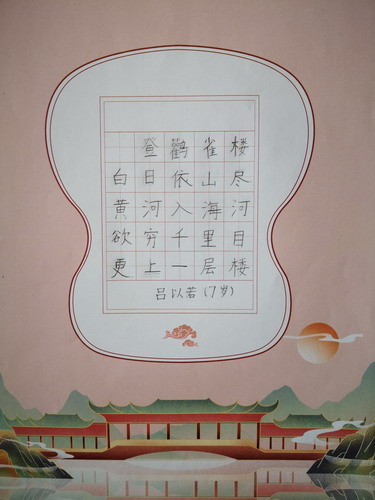 登鹳雀楼
白日依山尽
黄河入海河
欲穷千里目
更上一层楼
吕以若(7岁)